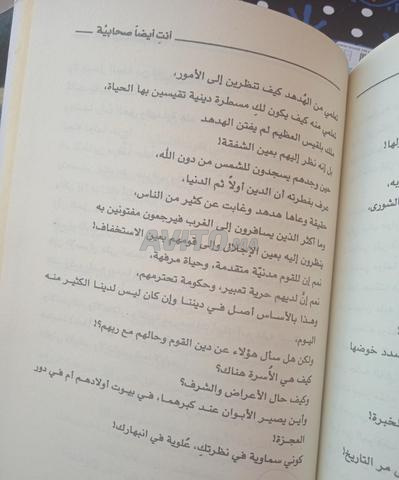 أنتِ أيضاً صحابيّة
تعلمي من الهدهد كيف تنظرين إلى الأمور،
تعلمي منه كيف يكون لكِ مسطرة دينية تقيسين بها الحياة،
ملك بلقيس العظيم لم يفتن الهدهد
بل إنه نظر إليهم بعين الشفقة!
حين وجدهم يسجدون للشمس من دون الله،
عرف بفطرته أن الدين أولاً ثم الدنيا،
حقيقة وعاها هدهد وغابت عن كثير من الناس،
وما أكثر الذين يسافرون إلى الغرب فيرجعون مفتونين به
ينظرون إليه بعين الإجلال وإلى قومهم بعين الاستخفاف!
نعم إن للقوم مدنيّة متقدمة، وحياة مرفهة،
نعم إنَّ لديهم حرية تعبير، وحكومة تحترمهم،
وهذا بالأساس أصل في ديننا وإن كان ليس لدينا الكثير منه
اليوم،
ولكن هل سأل هؤلاء عن دين القوم وحالهم مع ربهم؟!
كيف هي الأُسرة هناك؟
وكيف حال الأعراض والشرف؟
وأين يصير الأبوان عند كبرهما، في بيوت أولادهم أم في دور
العجزة!
كوني سماوية في نظرتكِ، عُلوية في انبهارك!
AVITO.ma
الشورى،
سدد خوضها
لخبرة!
مر التاريخ!